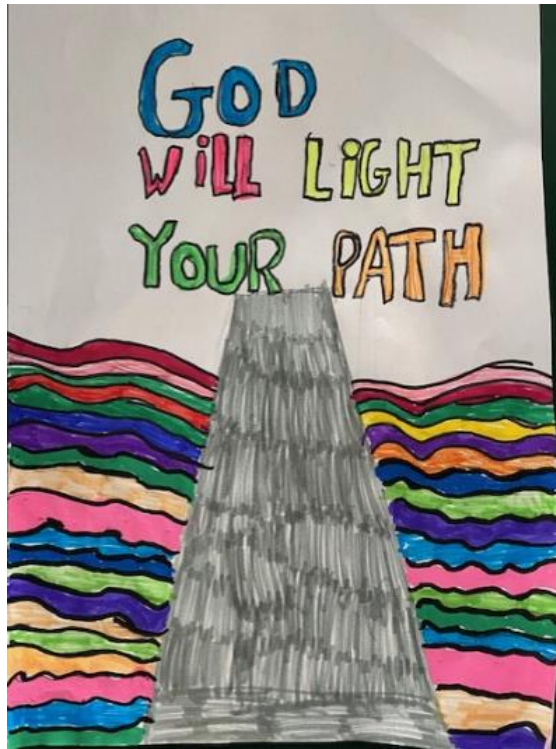 GOD
WiLL LiGHT
YOUR PATH